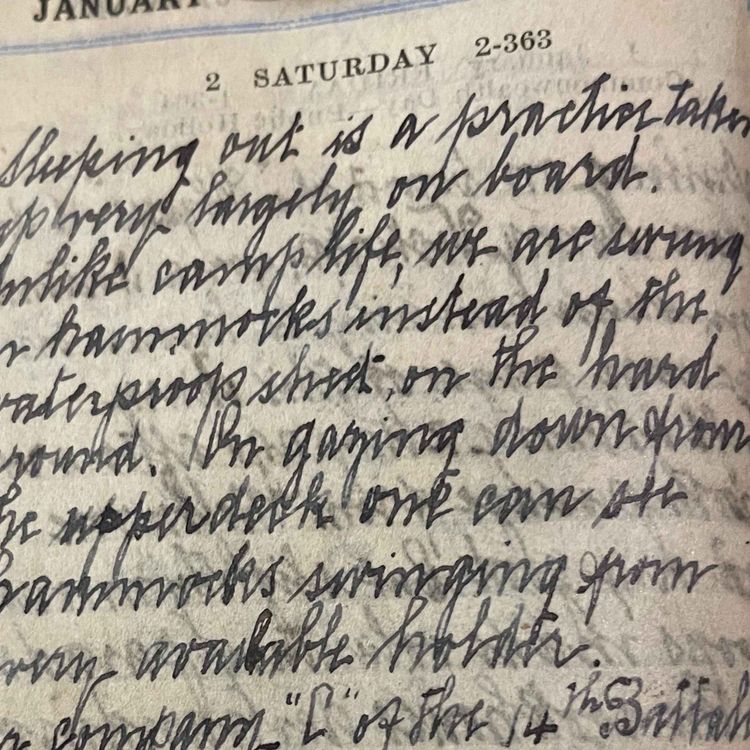 JANUARY
2 SATURDAY 2-363
Sleeping out is a practice taken
up very largely on board.
Unlike camp life, we are swung
in hammocks instead of the
waterproof sheet, on the hard
ground. On gazing down from
the upperdeck one can see
hammocks swinging from
every available holder.
company "C" of the 14th Battal